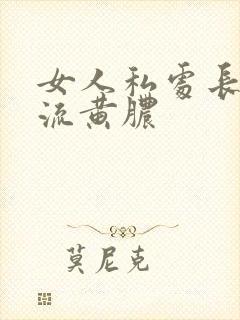 女人私處長
流黃膿
莫尼克